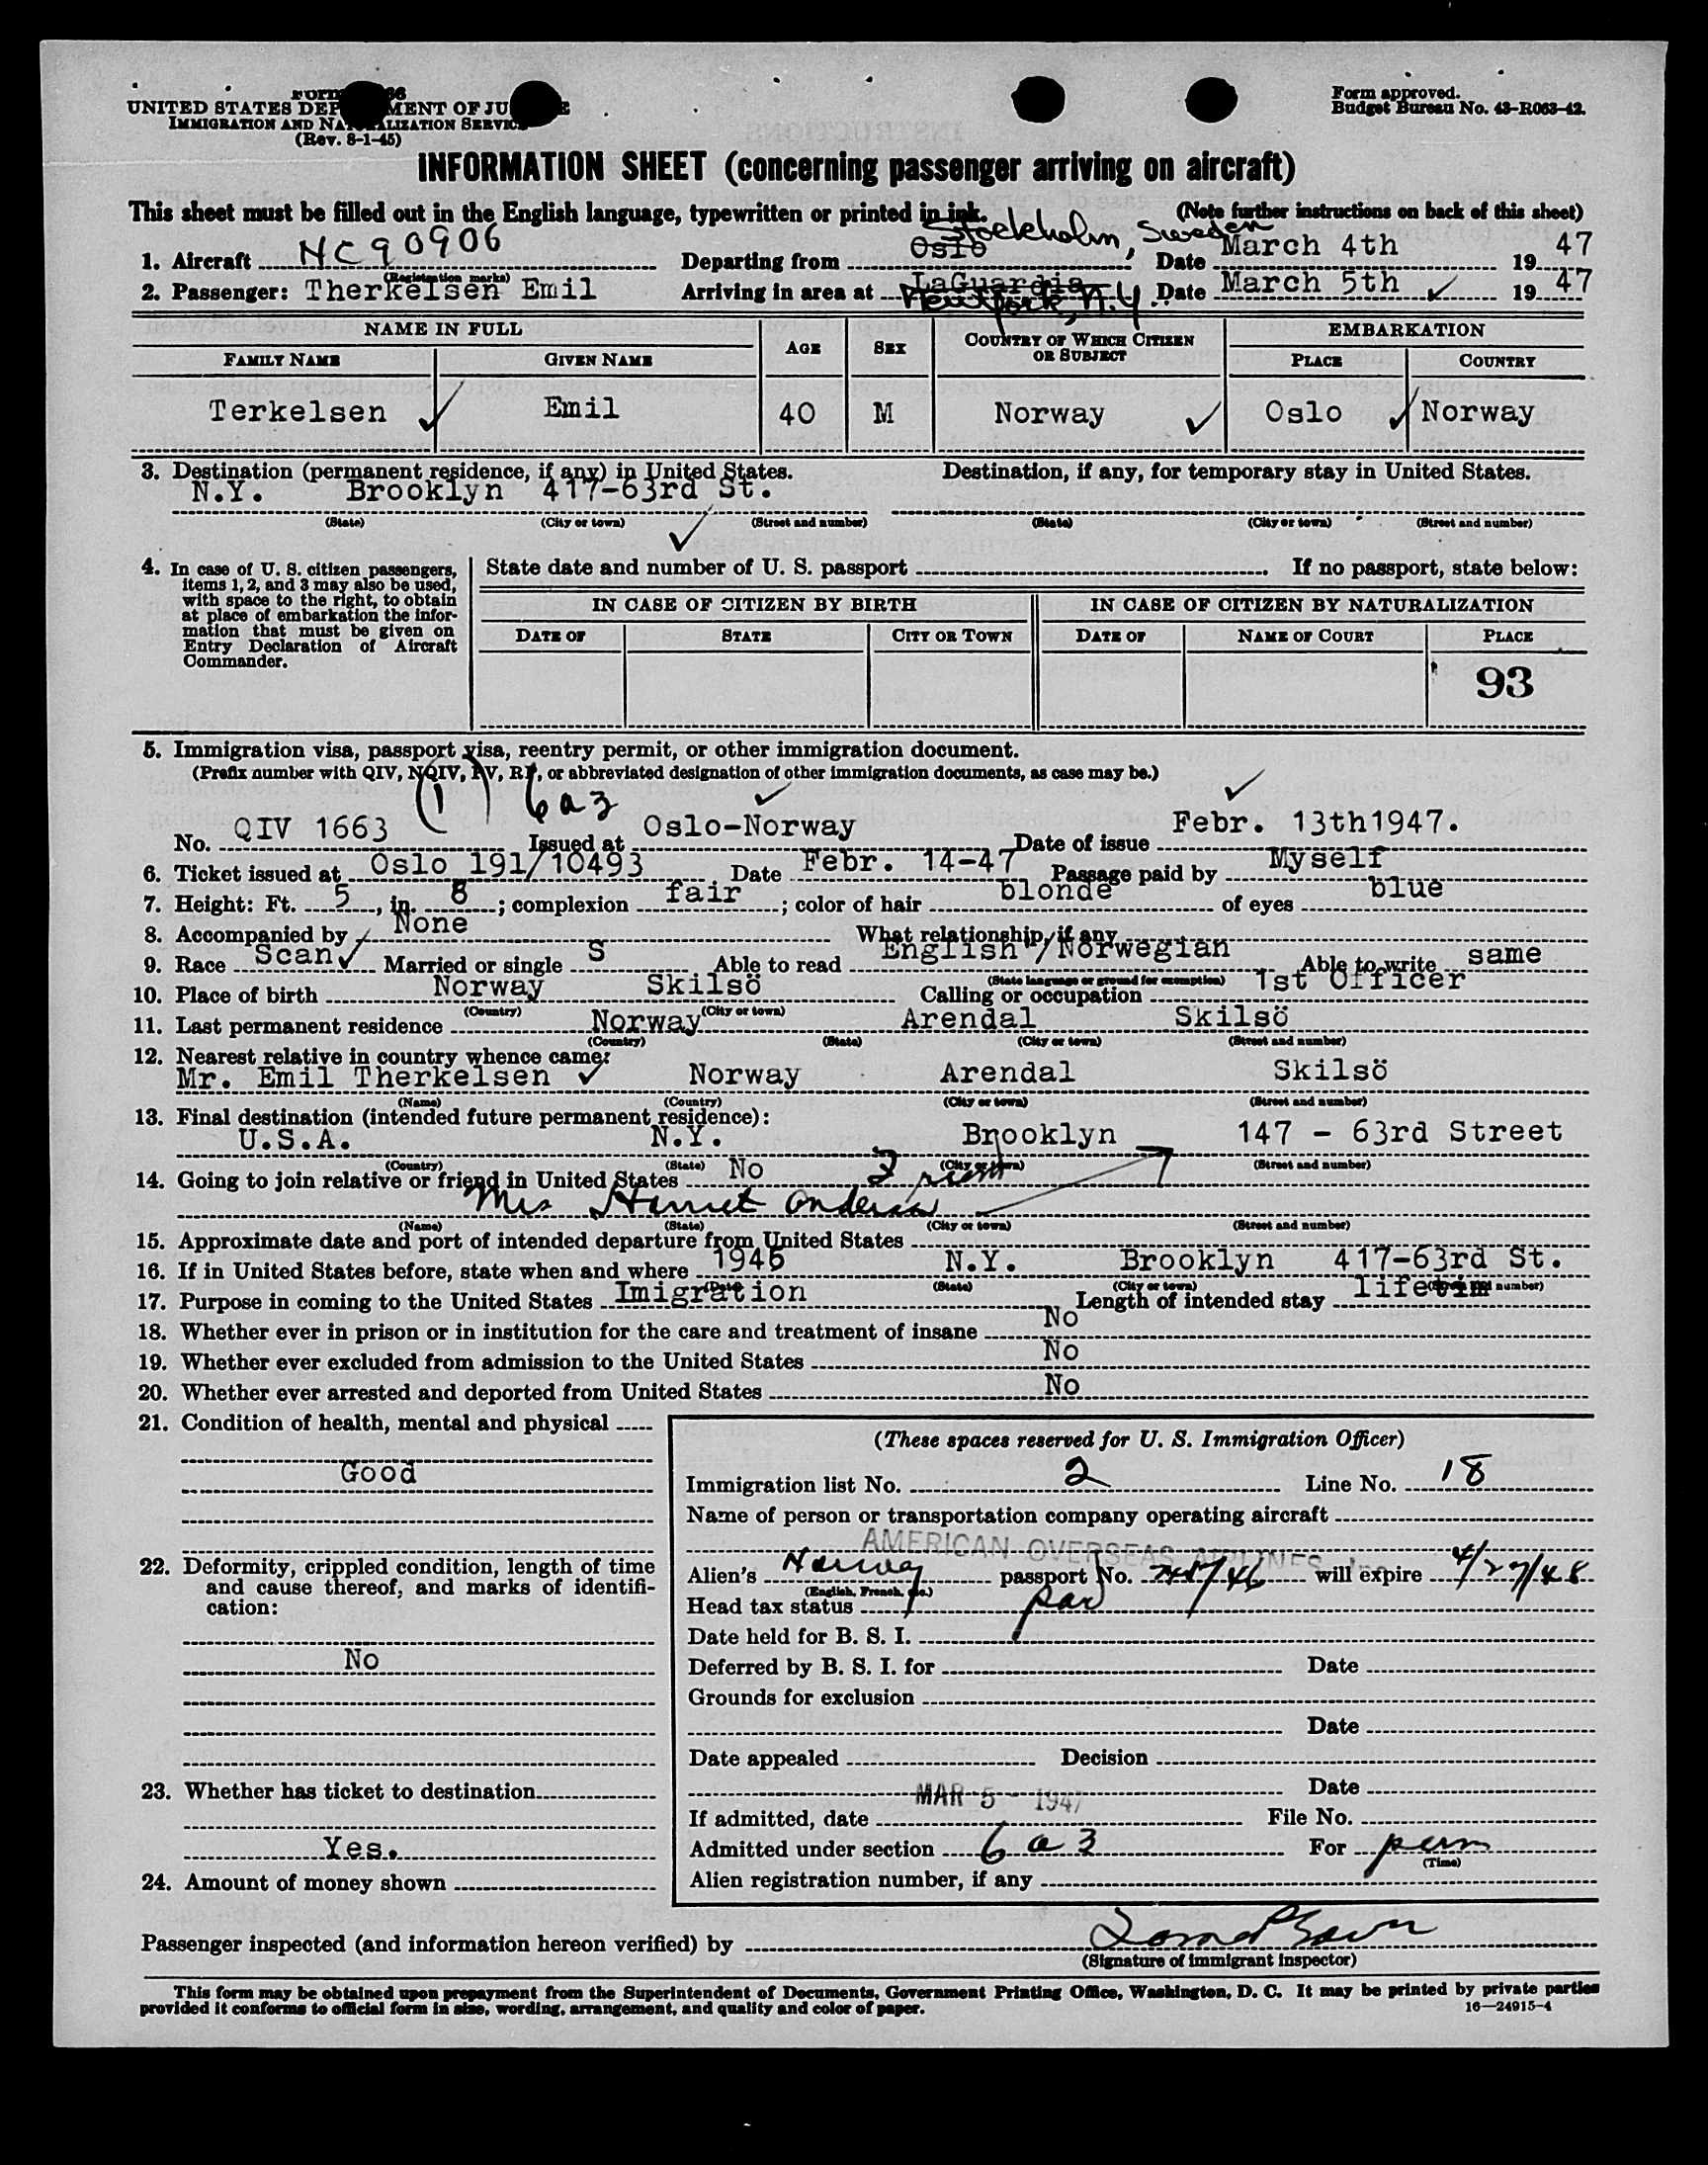 UNITED STATES DEP MENT OF JU E
IMMIGRATION AND NATURALIZATION SERVICE
(Rev. 8-1-45)
Form approved.
Budget Bureau No. 43-R063-42.
INFORMATION SHEET (concerning passenger arriving on aircraft)
This sheet must be filled out in the English language, typewritten or printed in ink. (Note further instructions on back of this sheet)
Stockholm, Sweden
1. Aircraft NC90906 Departing from Oslo Date March 4th 1947
(Registration marks)
2. Passenger: Therkelsen Emil Arriving in area at LaGuardia Date March 5th ✓ 1947
New York, N.Y.
NAME IN FULL AGE SEX COUNTRY OF WHICH CITIZEN OR SUBJECT EMBARKATION
FAMILY NAME GIVEN NAME PLACE COUNTRY
Terkelsen ✓ Emil 40 M Norway ✓ Oslo ✓ Norway
3. Destination (permanent residence, if any) in United States. Destination, if any, for temporary stay in United States.
N.Y. Brooklyn 417-63rd St.
(State) (City or town) (Street and number) (State) (City or town) (Street and number)
✓
4. In case of U. S. citizen passengers, items 1, 2, and 3 may also be used, with space to the right, to obtain at place of embarkation the information that must be given on Entry Declaration of Aircraft Commander.
State date and number of U. S. passport If no passport, state below:
IN CASE OF CITIZEN BY BIRTH IN CASE OF CITIZEN BY NATURALIZATION
DATE OF STATE CITY OR TOWN DATE OF NAME OF COURT PLACE
93
5. Immigration visa, passport visa, reentry permit, or other immigration document.
(Prefix number with QIV, NQIV, PV, RP, or abbreviated designation of other immigration documents, as case may be.)
(1) 6a3 ✓ ✓
No. QIV 1663 Issued at Oslo-Norway Date of issue Febr. 13th1947.
6. Ticket issued at Oslo 191/10493 Date Febr. 14-47 Passage paid by Myself
7. Height: Ft. 5, in. 8; complexion fair; color of hair blonde of eyes blue
8. Accompanied by None What relationship, if any
9. Race Scan ✓ Married or single S Able to read English/Norwegian Able to write same
(State language or ground for exemption)
10. Place of birth Norway Skilsö Calling or occupation 1st Officer
(Country) (City or town)
11. Last permanent residence Norway Arendal Skilsö
(Country) (State) (City or town) (Street and number)
12. Nearest relative in country whence came:
Mr. Emil Therkelsen ✓ Norway Arendal Skilsö
(Name) (Country) (City or town) (Street and number)
13. Final destination (intended future permanent residence):
U.S.A. N.Y. Brooklyn 147 - 63rd Street
(Country) (State) (City or town) (Street and number)
14. Going to join relative or friend in United States No
Mrs Harriet
(Name) (State) (City or town) (Street and number)
15. Approximate date and port of intended departure from United States
16. If in United States before, state when and where 1945 N.Y. Brooklyn 417-63rd St.
(Date) (State) (City or town) (Street and number)
17. Purpose in coming to the United States Imigration Length of intended stay lifetim
18. Whether ever in prison or in institution for the care and treatment of insane No
19. Whether ever excluded from admission to the United States No
20. Whether ever arrested and deported from United States No
21. Condition of health, mental and physical
Good
22. Deformity, crippled condition, length of time and cause thereof, and marks of identification:
No
23. Whether has ticket to destination
Yes.
24. Amount of money shown
(These spaces reserved for U. S. Immigration Officer)
Immigration list No. 2 Line No. 18
Name of person or transportation company operating aircraft
AMERICAN OVERSEAS AIRLINES Inc
Alien's Norway passport No. will expire 4/27/48
(English, French, etc.)
Head tax status
Date held for B. S. I.
Deferred by B. S. I. for Date
Grounds for exclusion
Date
Date appealed Decision
Date
MAR 5 - 1947
If admitted, date File No.
Admitted under section 6 a 3 For perm
(Time)
Alien registration number, if any
Passenger inspected (and information hereon verified) by
(Signature of immigrant inspector)
This form may be obtained upon prepayment from the Superintendent of Documents, Government Printing Office, Washington, D. C. It may be printed by private parties
provided it conforms to official form in size, wording, arrangement, and quality and color of paper. 16—24915-4